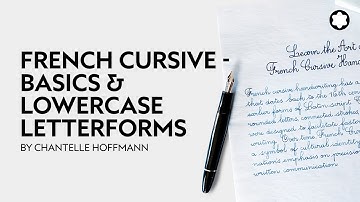 FRENCH CURSIVE -
BASICS &
LOWERCASE
LETTERFORMS
BY CHANTELLE HOFFMANN
Learn the Art
French Cursive Hand
French cursive handwriting has a
that dates back to the 16th
earlier forms of Latin script. C
rounded letters, connected strokes
were designed to facilitate faster
writing. Over time, French Cur
a symbol of cultural identity
nation's emphasis on precision
written communication.